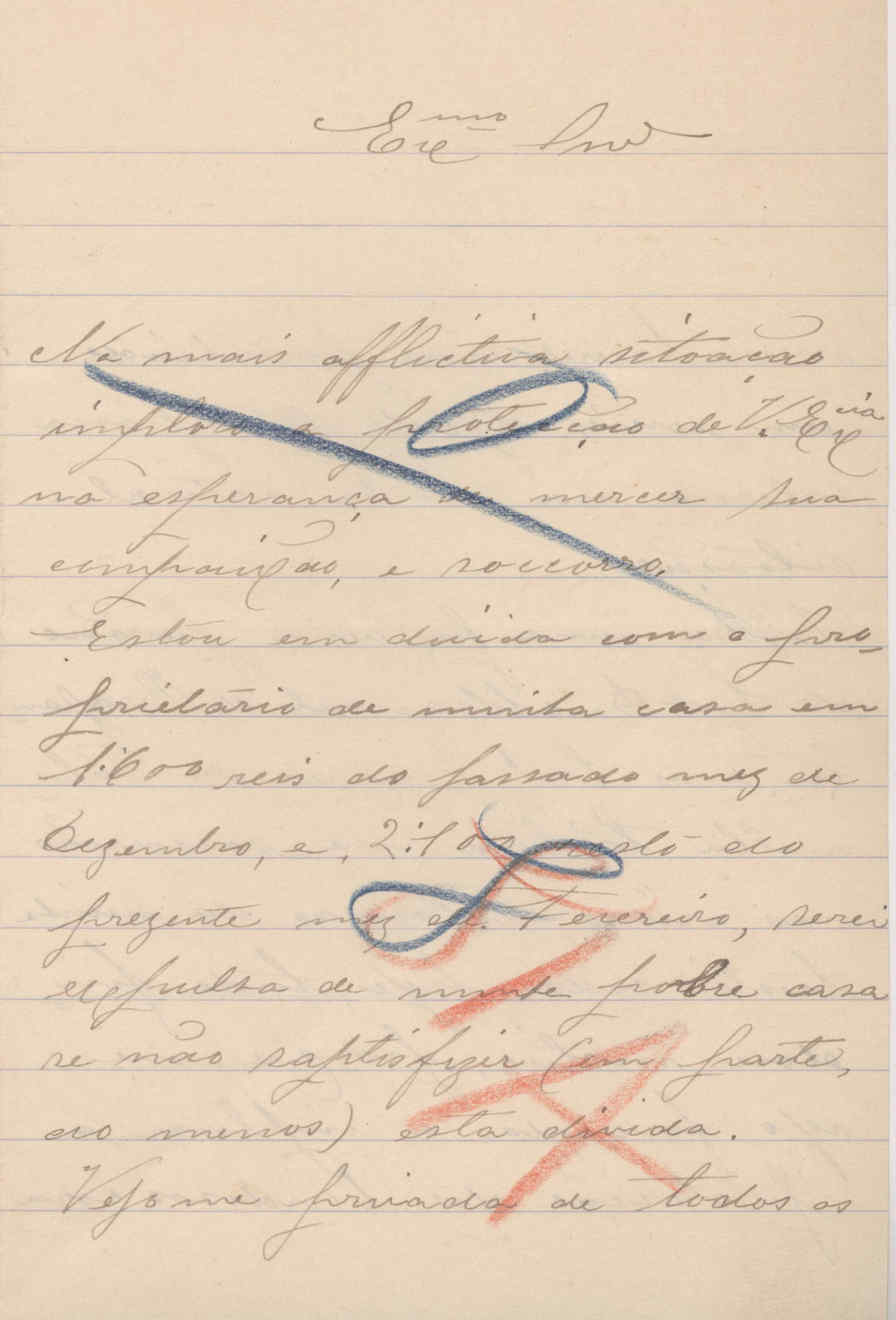 Exmo Snr
Na mais afflictiva sitoação
imploro a proteição de V. Excia
na esperança de mercer sua
compaixão, e soccorro.
Estou em divida com o pro-
prietário de minha casa em
1:600 reis do passado mez de
Dezembro, e, 2:100 nesta do
prezente mez de Fevereiro, serei
expulsa de minha pobre casa
se não saptisfizer (em parte,
ao menos) esta divida.
Vejo me privada de todos os